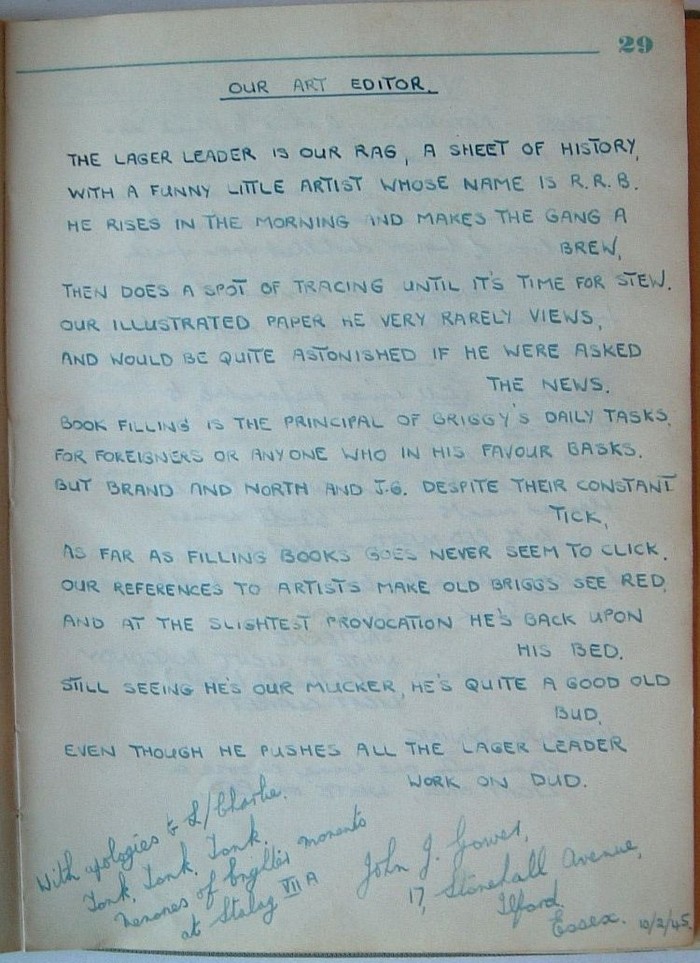 29
OUR ART EDITOR.
THE LAGER LEADER IS OUR RAG, A SHEET OF HISTORY,
WITH A FUNNY LITTLE ARTIST WHOSE NAME IS R.R.B.
HE RISES IN THE MORNING AND MAKES THE GANG A
BREW,
THEN DOES A SPOT OF TRACING UNTIL IT'S TIME FOR STEW.
OUR ILLUSTRATED PAPER HE VERY RARELY VIEWS,
AND WOULD BE QUITE ASTONISHED IF HE WERE ASKED
THE NEWS.
BOOK FILLING IS THE PRINCIPAL OF BRIGGY'S DAILY TASKS.
FOR FOREIGNERS OR ANYONE WHO IN HIS FAVOUR BASKS.
BUT BRAND AND NORTH AND J.G. DESPITE THEIR CONSTANT
TICK,
AS FAR AS FILLING BOOKS GOES NEVER SEEM TO CLICK.
OUR REFERENCES TO ARTISTS MAKE OLD BRIGGS SEE RED,
AND AT THE SLIGHTEST PROVOCATION HE'S BACK UPON
HIS BED.
STILL SEEING HE'S OUR MUCKER, HE'S QUITE A GOOD OLD
BUD,
EVEN THOUGH HE PUSHES ALL THE LAGER LEADER
WORK ON DUD.
With apologies to L/Charlie.
Tonk, Tonk, Tonk.
Memories of brighter moments
at Stalag VII A
John J. Gower,
17, Stonehall Avenue,
Ilford.
Essex. 10/2/45.